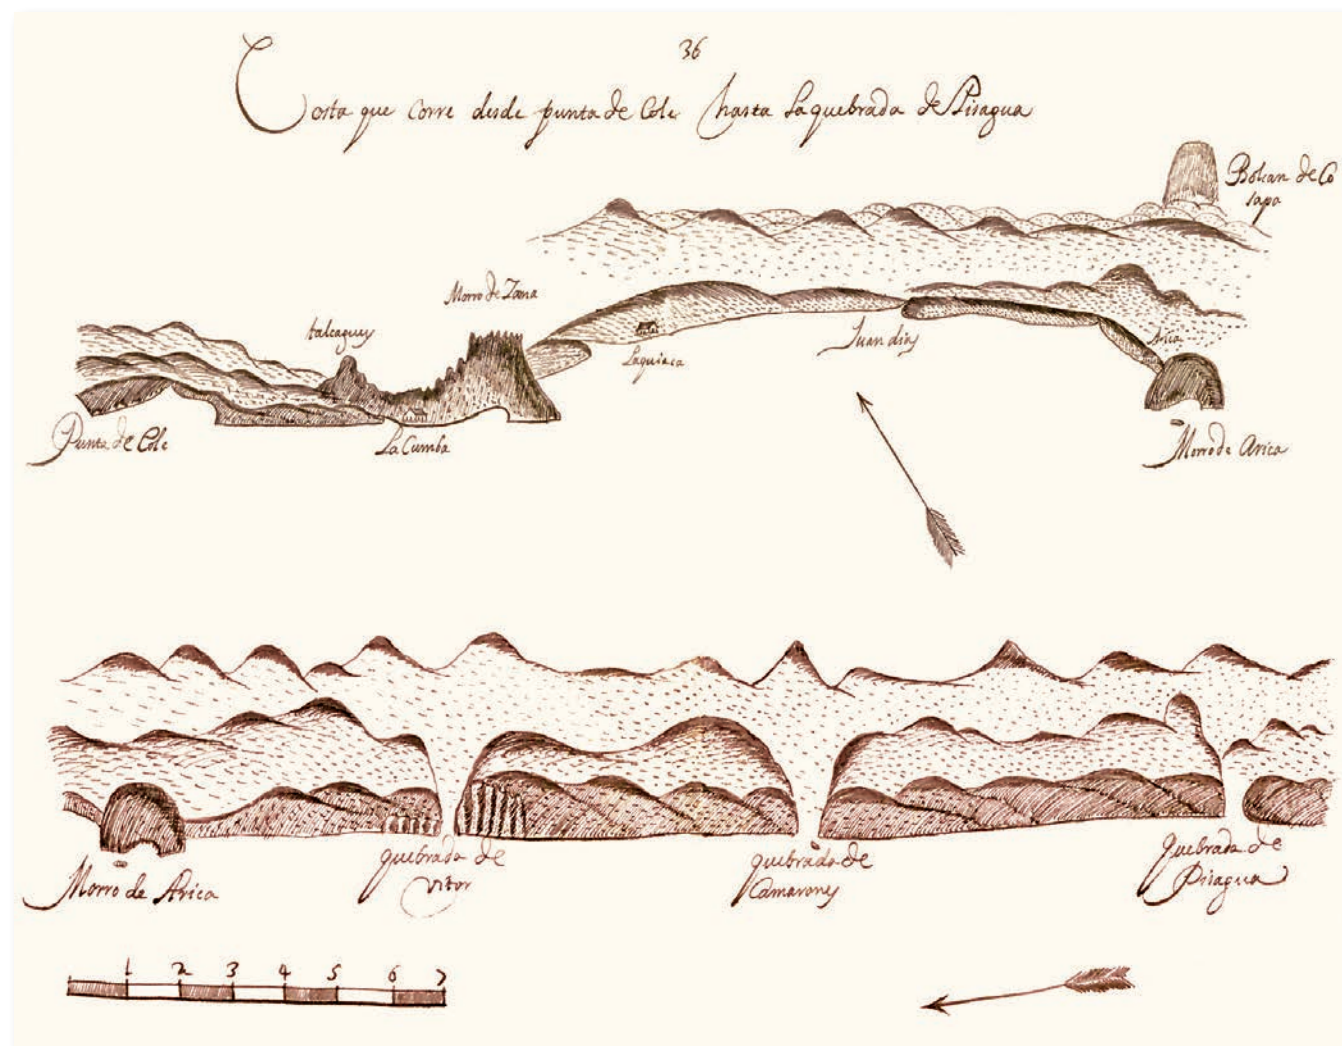 36
Costa que corre desde punta de Cole hasta la quebrada de Pisagua
Bolcan de Co
tapa
Morro de Zama
talcaguey
Punta de Cole
La Cumba
Laquiaca
Juan dias
Arica
Morro de Arica
Morro de Arica
quebrada de
vitor
quebrada de
Camarones
quebrada de
Pisagua
1 2 3 4 5 6 7